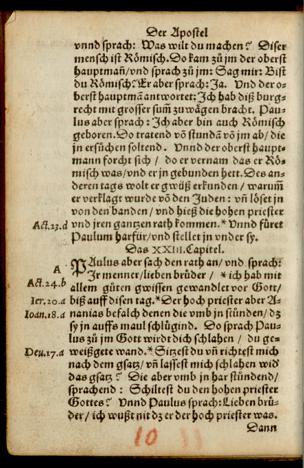 Der Apostel
vnnd sprach: Was wilt du machen? Diser
mensch ist Römisch. Do kam zů jm der oberst
hauptmañ/vnd sprach zů jm: Sag mir: Bist
du Römisch? Er aber sprach: Ja. Vnd der o-
berst hauptmã antwortet: Ich hab diß burg-
recht mit grosser sum̃ zů wägen bracht. Pau-
lus aber sprach: Ich aber bin auch Römisch
geboren. Do tratend võ stundã võ jm ab/die
jn ersůchen soltend. Vnnd der oberst haupt-
mann forcht sich / do er vernam das er Rö-
misch was/vnd er jn gebunden hett. Des an-
deren tags wolt er gwüß erkunden / warum̃
er verklagt wurde võ den Juden: vñ löset jn
von den banden / vnd hieß die hohen priester
Act.23.d vnd jren gantzen rath kommen. * Vnnd füret
Paulum harfür/vnd stellet jn vnder sy.
Das XXIII. Capitel.
A Paulus aber sach den rath an/ vnd sprach:
Act.24.b Ir menner/lieben brüder / * ich hab mit
allem gůten gwissen gewandlet vor Gott/
Ier.20.a biß auff disen tag. * Der hoch priester aber A-
Ioan.18.a nanias befalch denen die vmb jn stůnden/ dz
sy jn auffs maul schlůgind. Do sprach Pau-
lus zů jm Gott wirdt dich schlahen / du ge-
Deu.17.a weißgete wand. * Sitzest du vñ richtest mich
nach dem gsatz/ vñ lassest mich schlahen wid
das gsatz? Die aber vmb in har stůndend/
sprachend : Schiltest du den hohen priester
Gottes? Vnnd Paulus sprach: Lieben brü-
der/ ich wußt nit dz er der hoch priester was.
Dann
10